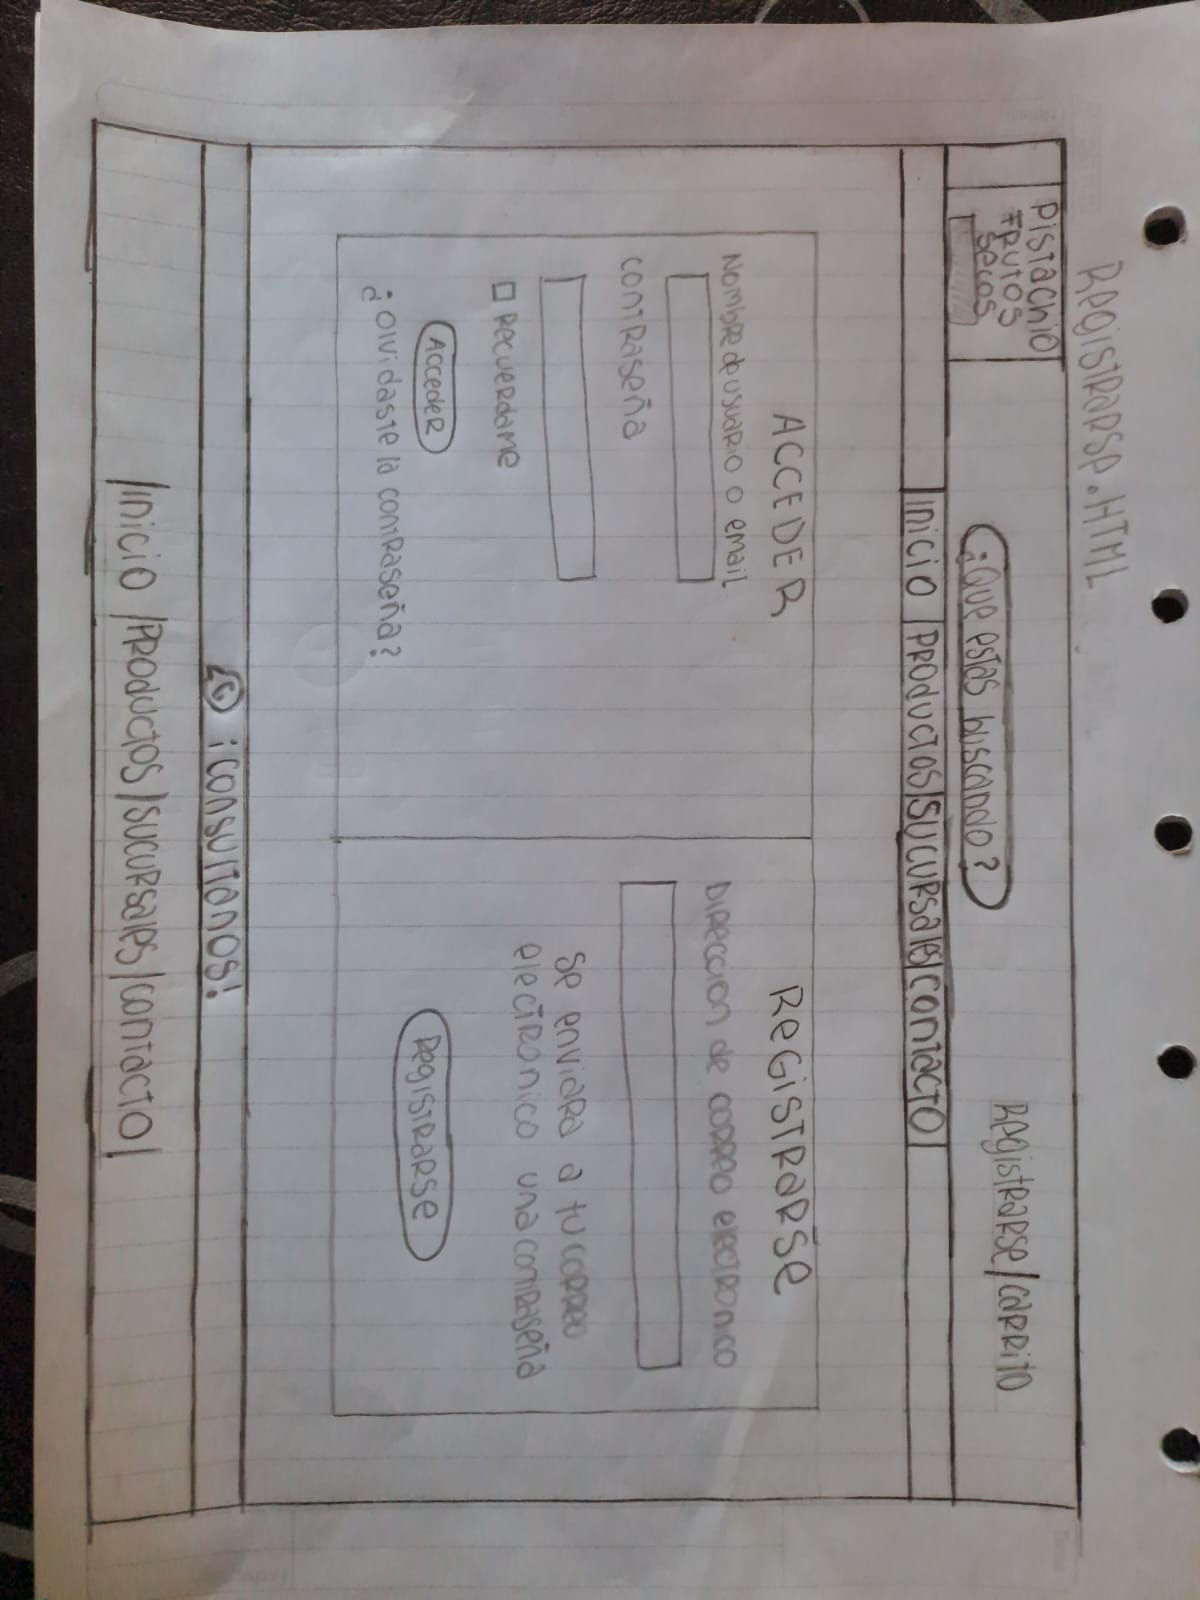 Registrarse.HTML
Pistachio
Frutos
secos
¿Que estas buscando?
Registrarse/carrito
Inicio |Productos|Sucursales|contacto|
ACCEDER
Nombre de usuario o email
contraseña
Recuerdame
Acceder
¿Olvidaste la contraseña?
Registrarse
Direccion de correo electronico
Se enviara a tu correo
electronico una contraseña
Registrarse
¡Consultanos!
|Inicio |Productos |Sucursales |contacto|